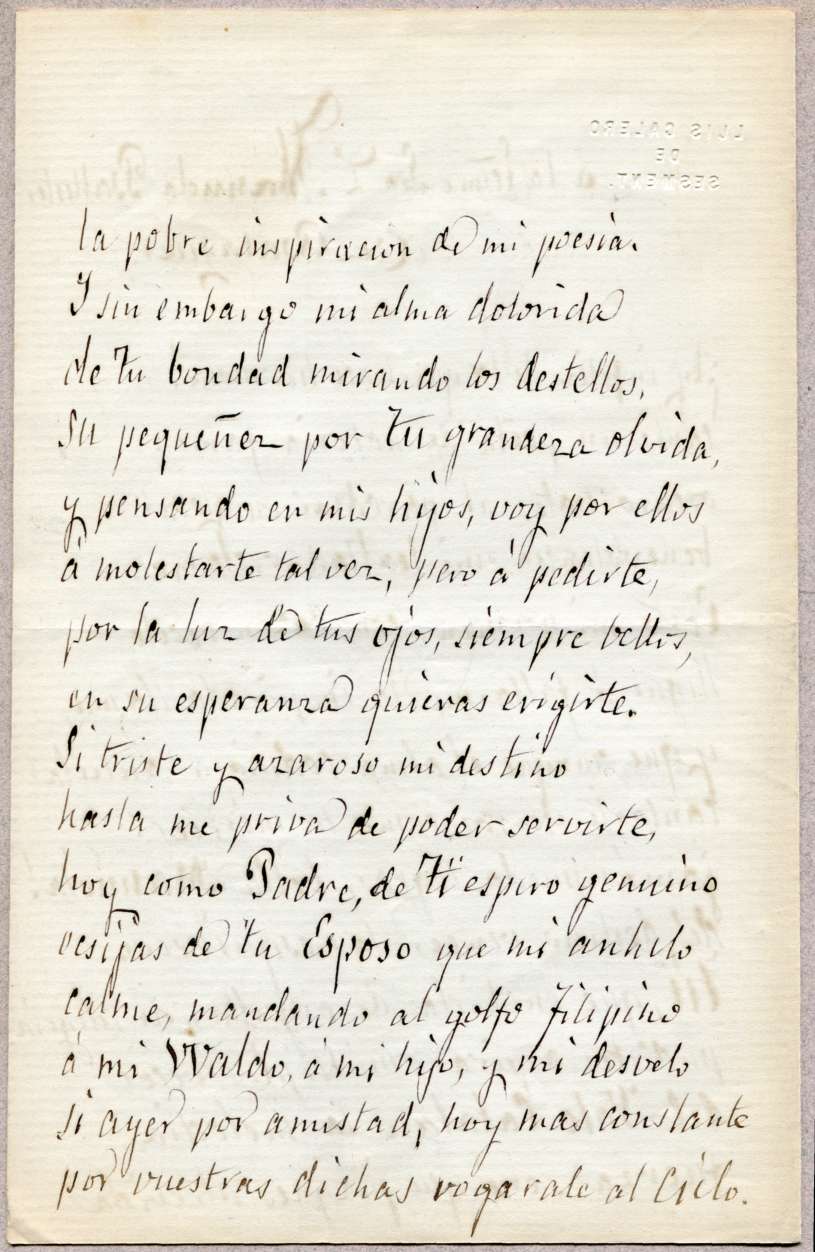 LUIS CALERO
DE
SESMENT.
la pobre inspiracion de mi poesía.
Y sin embargo mi alma dolorida
de tu bondad mirando los destellos,
su pequeñez por tu grandeza olvida,
y pensando en mis hijos, voy por ellos
á molestarte tal vez, pero á pedirte,
por la luz de tus ojos, siempre bellos,
en su esperanza quieras erigirte.
Si triste y azaroso mi destino
hasta me priva de poder servirte,
hoy como Padre, de tí espero genuino
ecsijas de tu Esposo que mi anhelo
calme, mandando al golfo filipino
á mi Waldo, á mi hijo, y mi desvelo
si ayer por amistad, hoy mas constante
por vuestras dichas rogarale al Cielo.